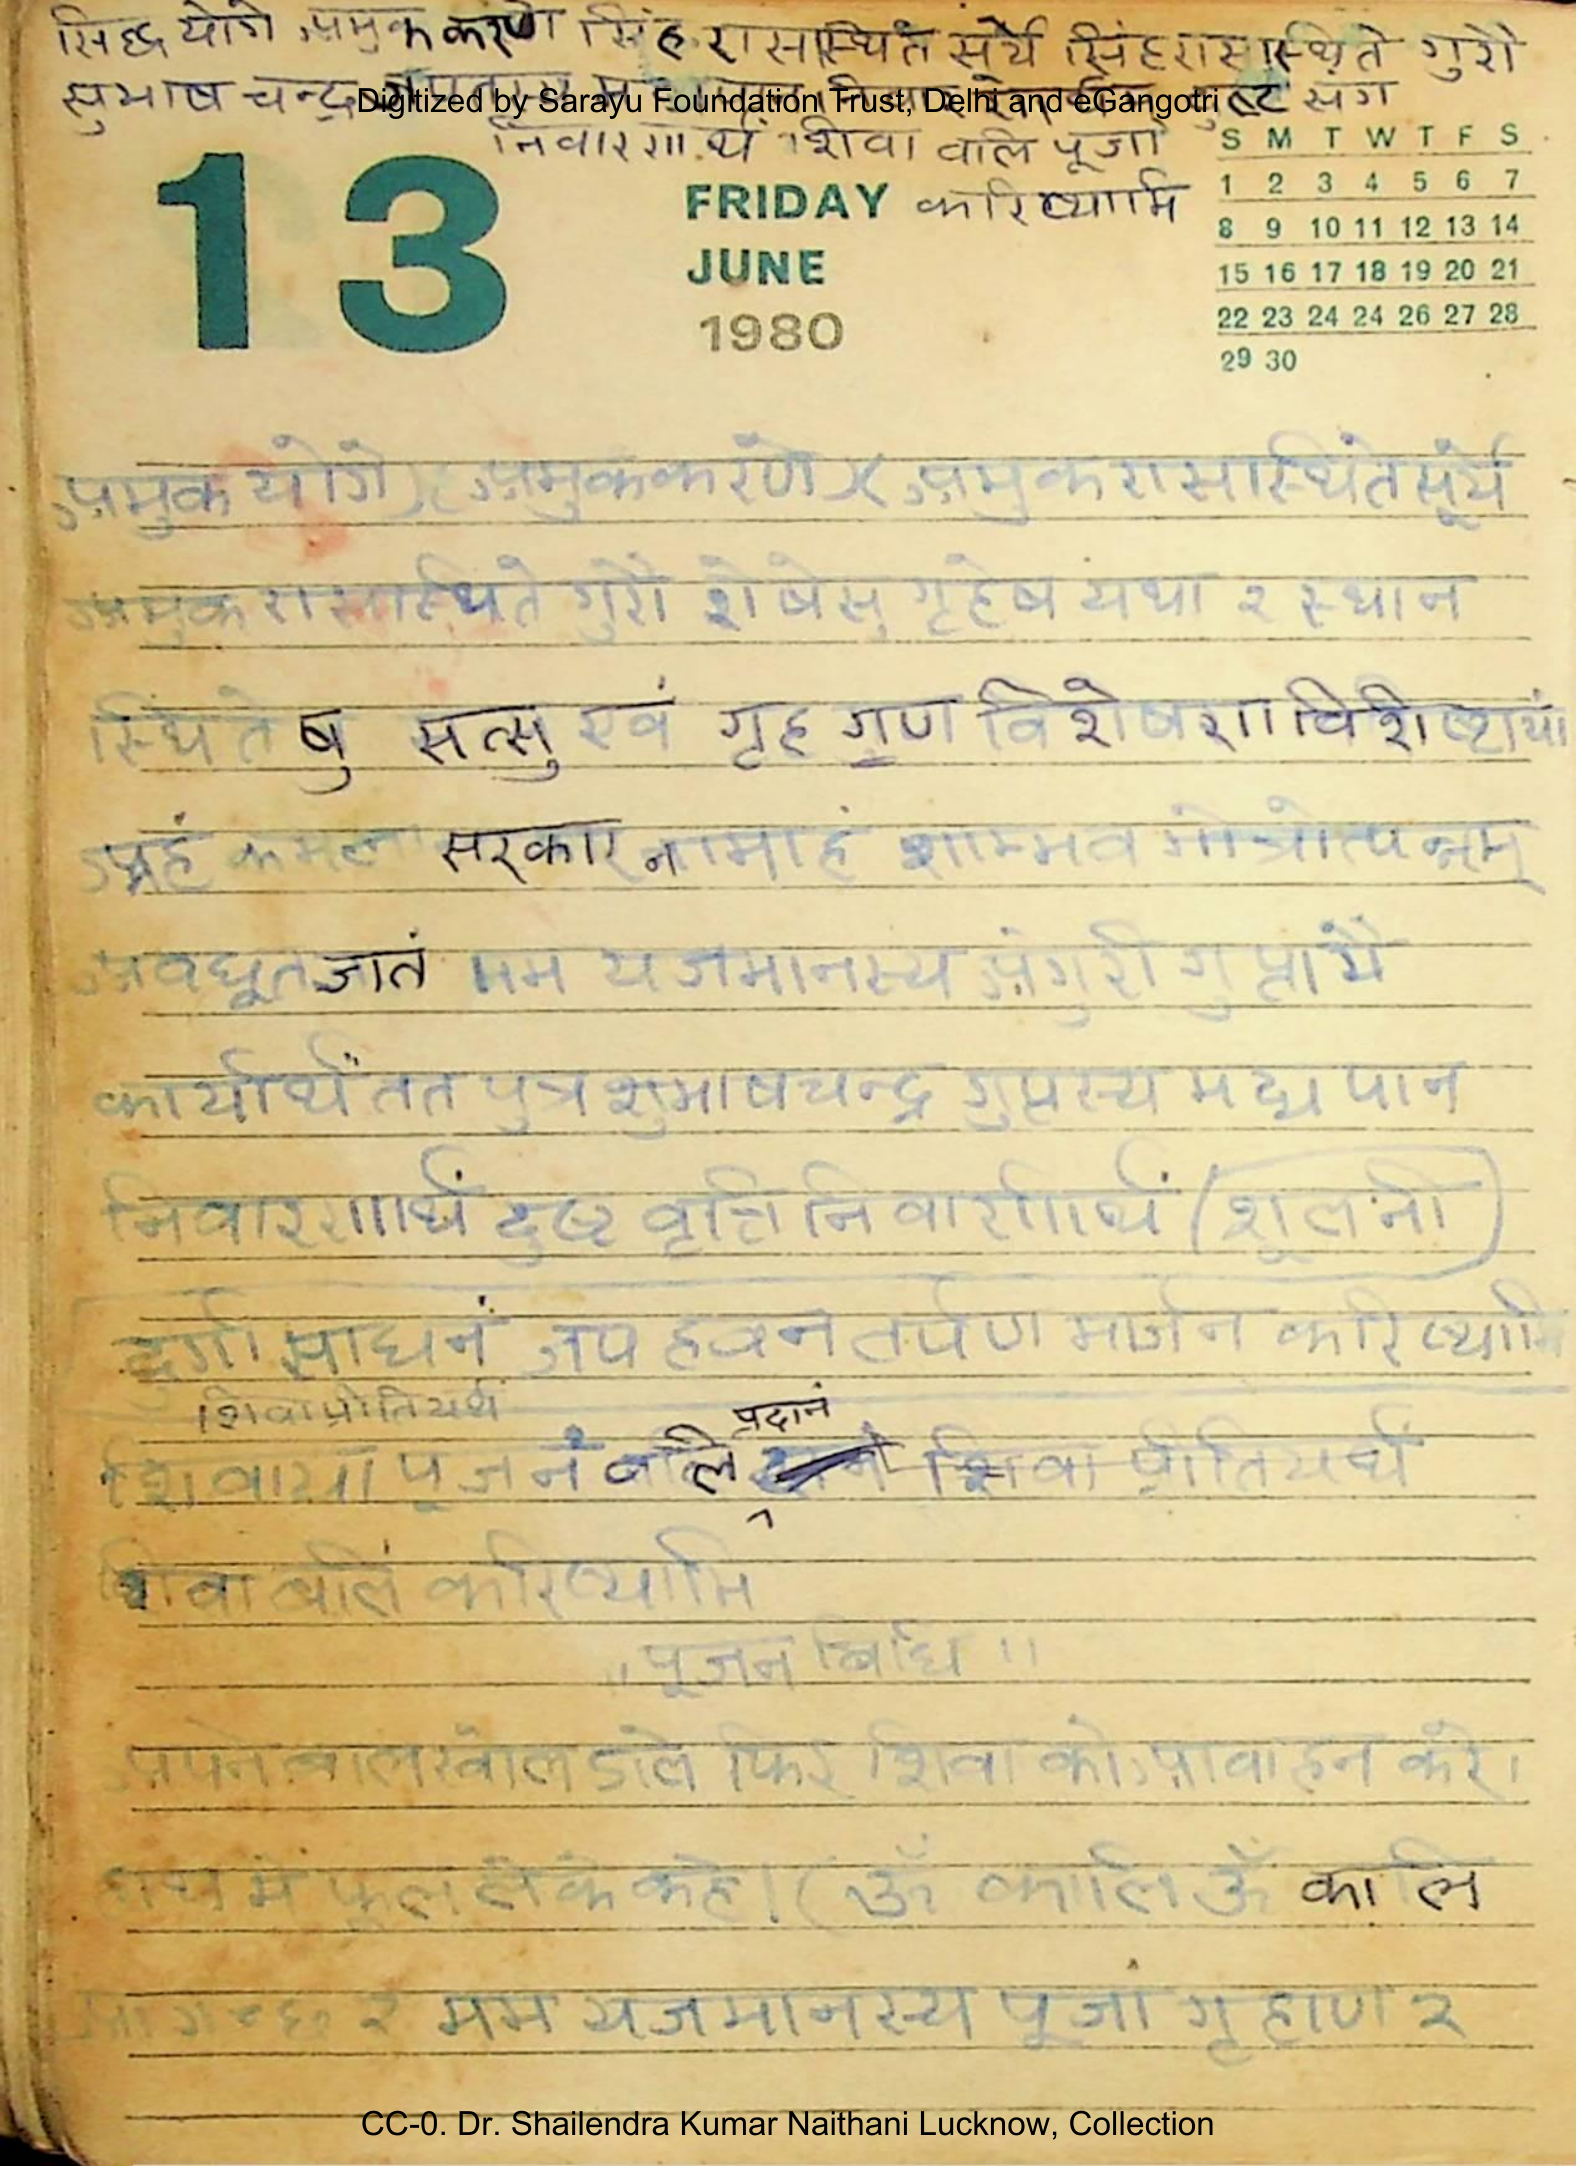 सिद्ध योगे अमुक करणे सिंह रासास्थिते सूर्ये सिंहरासास्थिते गुरौ
सुभाष चन्द्र दुष्ट संग
Digitized by Sarayu Foundation Trust, Delhi and eGangotri
निवारणार्थं शिवा वलि पूजां
करिष्यामि
13
FRIDAY
JUNE
1980
S M T W T F S
1 2 3 4 5 6 7
8 9 10 11 12 13 14
15 16 17 18 19 20 21
22 23 24 24 26 27 28
29 30
अमुक योगे अमुककरणे अमुक रासास्थिते सूर्ये
अमुक रासास्थिते गुरौ शेषेसु गृहेष यथा २ स्थान
स्थिते षु सत्सु एवं गृह गुण विशेषण विशिष्टायां
अहं कमल सरकार नामाहं शाम्भव गोत्रोत्पन्नम्
अवधूत जातं मम यजमानस्य अंगुरी गुप्ता मै
कार्यार्थं तत पुत्र शुभाषचन्द्र गुप्तस्य मद्य पान
निवारणार्थं दुष्ट वृत्ति निवार्णार्थं (शूलनी)
दुर्गा साधनं जप हवन तर्पण मार्जन करिष्यामि
शिवाप्रीतियर्थं
शिवाया पूजनं बलि प्रदानं शिवा प्रीतियर्थं
शिवा बलिं करिष्यामि
"पूजन बिधि"
अपने बाल खोल डाले फिर शिवा को आवाहन करे।
हाथ मे फूल लेके कहे। (ॐ कालि ॐ कालि
आगच्छ २ मम यजमानस्य पूजां गृहाण २
CC-0. Dr. Shailendra Kumar Naithani Lucknow, Collection